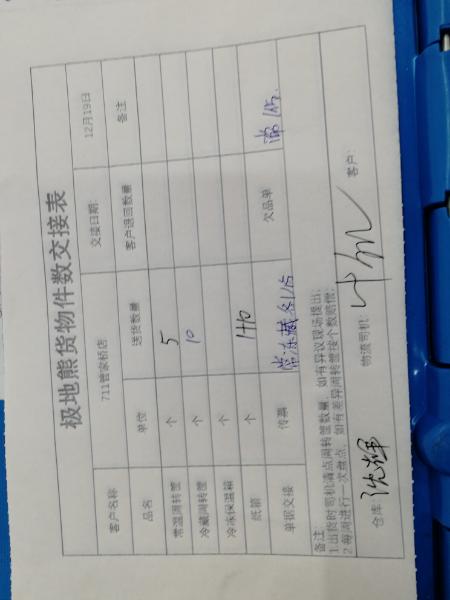 极地熊货物件数交接表
客户名称 711管家桥店 交接日期: 12月19日
品名 单位 送货数量 客户退回数量 备注
常温周转筐 个 5
冷藏周转筐 个 10
冷冻保温箱 个
纸箱 个 1+10
单据交接 传票 常冻藏各1/5 欠品单 常1/5.
备注:
1.出货时司机清点周转筐数量,如有异议现场提出;
2.每周进行一次盘点,如有差异周转筐按个数赔偿;
仓库: 沈辉 物流司机: 客户: